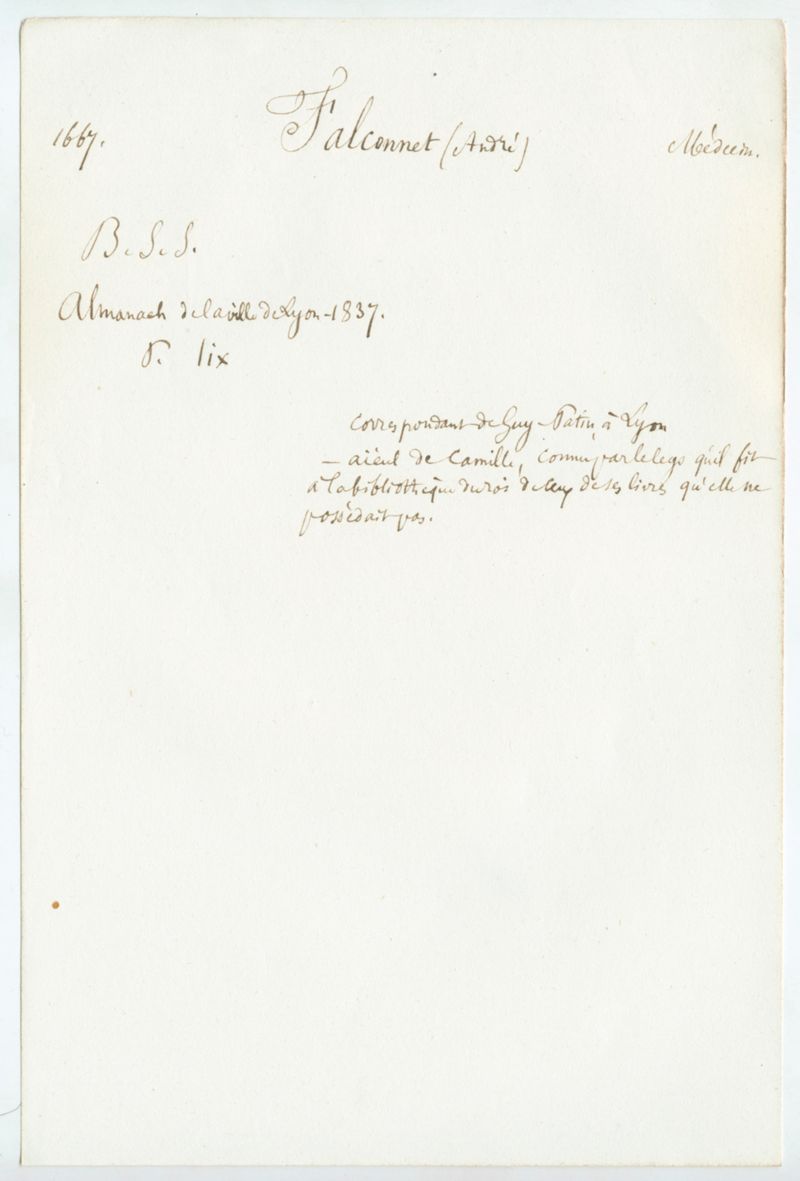 1667. Falconnet (André) Médecin.
B. S. S.
Almanach de la ville de Lyon - 1837.
P. lix
Correspondant de Guy-Patin, à Lyon
— aïeul de Camille, connu par le legs qu'il fit
à la bibliothèque du roi de ceux de ses livres qu'elle ne
possédait pas.